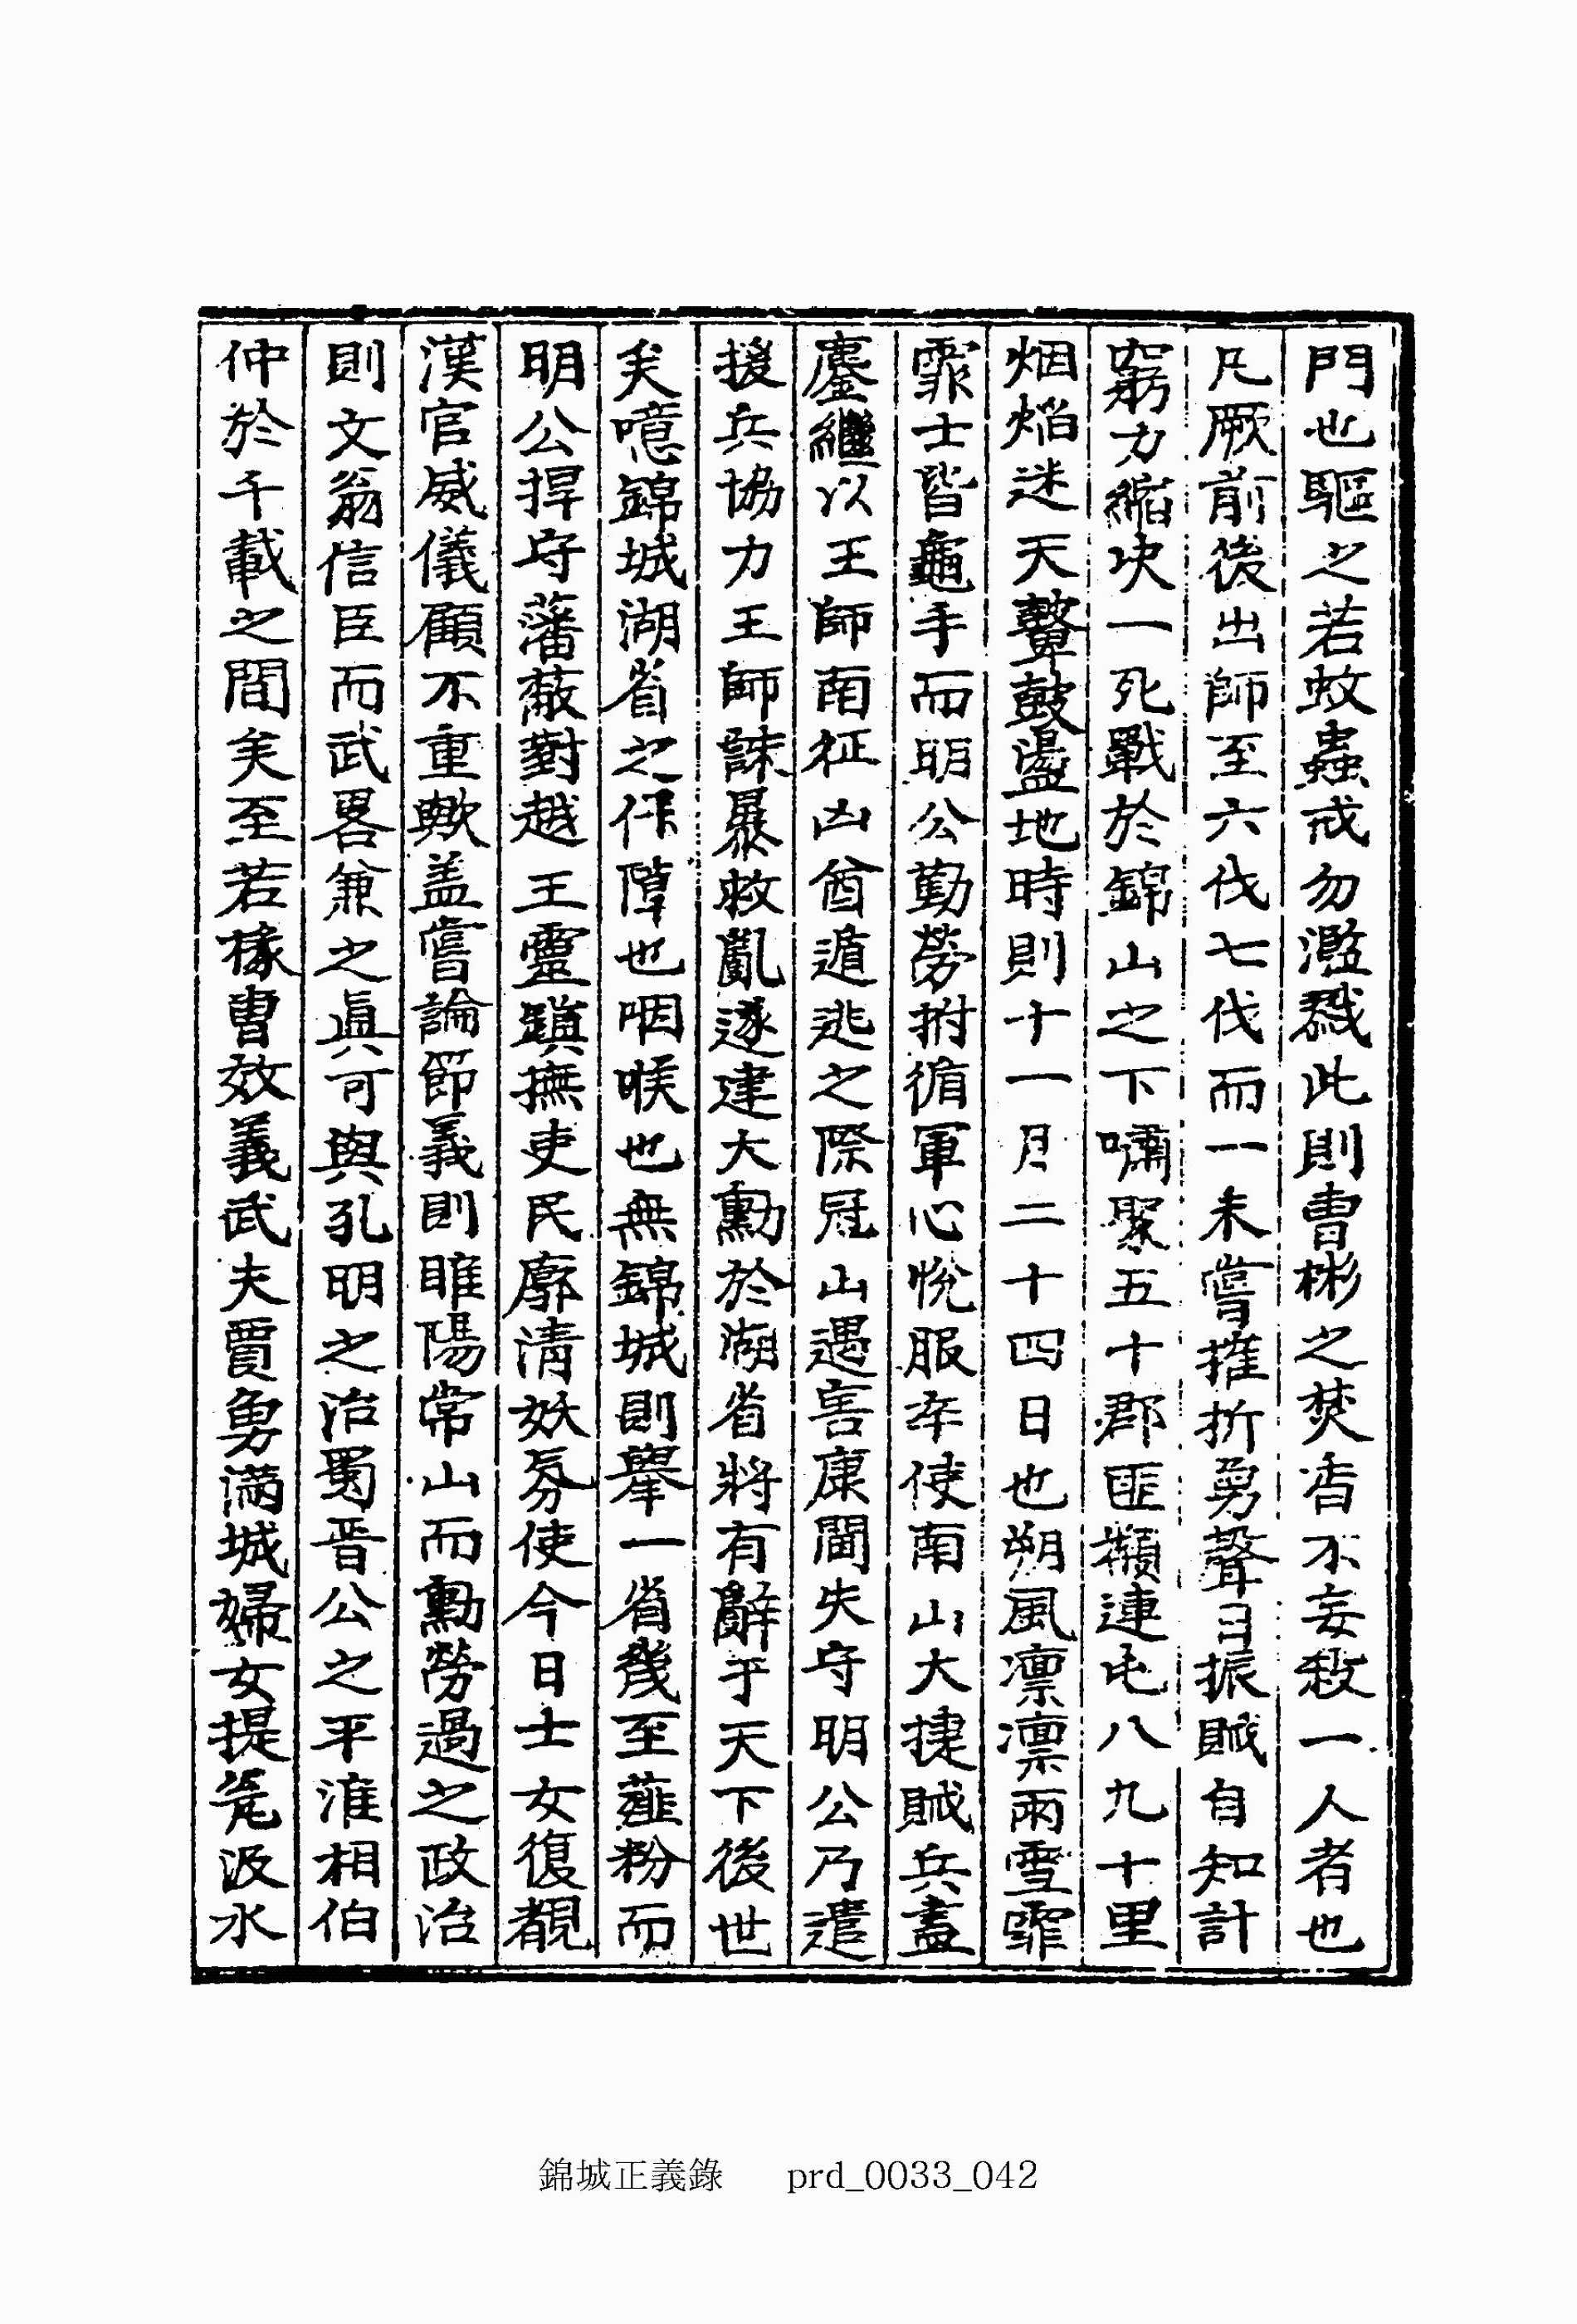 門也驅之若蚊蟲戒勿濫戮此則曺彬之焚香不妄殺一人者也
凡厥前後出師至六伐七伐而一未嘗摧折勇聲日振賊自知計
窮力縮决一死戰於錦山之下嘯聚五十郡匪纇連屯八九十里
烟焰迷天鼙鼓盪地時則十一月二十四日也朔風凛凛雨雪霏
霏士皆龜手而明公勤勞拊循軍心悅服卒使南山大捷賊兵盡
鏖繼以王師南征凶酋遁逃之際冠山遇害康閫失守明公乃遣
援兵協力王師誅暴救亂遂建大勳於湖省將有辭于天下後世
矣噫錦城湖省之保障也咽喉也無錦城則擧一省幾至虀粉而
明公捍守藩蔽對越王靈鎭撫吏民廓淸妖氛使今日士女復覩
漢官威儀顧不重歟盖嘗論節義則睢陽常山而勳勞過之政治
則文翁信臣而武畧兼之眞可與孔明之治蜀晋公之平淮相伯
仲於千載之間矣至若椽曺效義武夫賈勇滿城婦女提瓮汲水
錦城正義錄 prd_0033_042